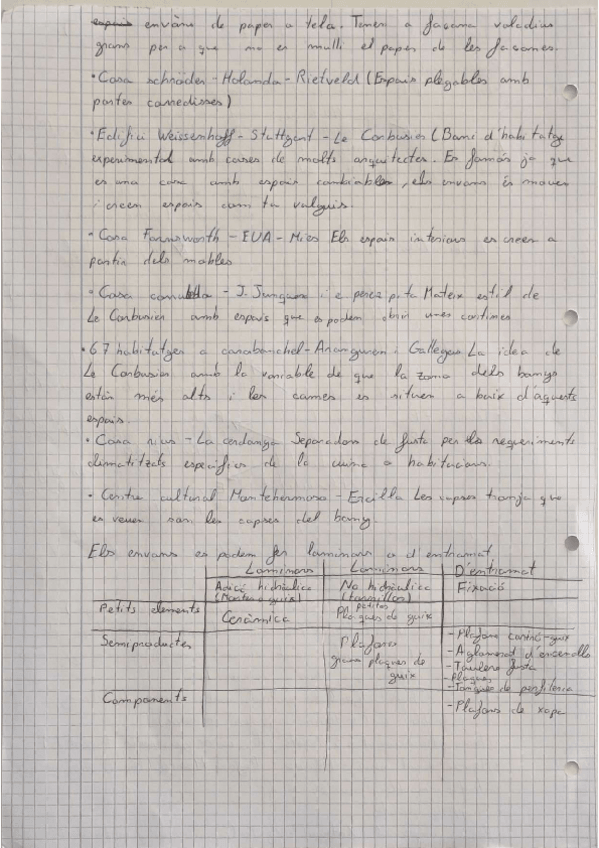 envans de paper o tela. Tenen a façana voladius
grans per a que no es mulli el paper de les façanes.
• Casa schröder - Holanda - Rietveld (Espais plegables amb
portes corredisses)
• Edifici Weissenhoff - Stuttgart - Le Corbusier (Barri d'habitatge
experimental amb cases de molts arquitectes. Es famós ja que
es una casa amb espais combinables, els envans és mouen
i creen espais com tu vulguis.
• Casa Farnsworth - EUA - Mies Els espais interiors es creen a
partir dels mobles
• Casa - J. Junquera i e perez pita Mateix estil de
Le Corbusier amb espais que es poden obrir unes cortines
• 67 habitatges a carabanchel - Aranguren i Gallegos La idea de
Le Corbusier amb la variable de que la zona dels banys
están més alts i les cames es situen a baix d'aquests
espais.
• Casa rius - La cerdanya Separadors de fusta per els requeriments
climatitzats especifics de la cuina o habitacions.
• Centre cultural Montehermoso - Ercilla Les capses tronja que
es veuen son les capses del bany.
Els envans es poden fer laminars o d'entramat
Laminars Laminars D'entramat
Unió hidràulica (Morter o guix) No hidràulica (tornillos) Fixació
Petits elements Ceràmica Petites Plaques de guix
Semiproductes Plafons grans plaques de guix - Plafons cartró-guix
- Aglomerat d'encenalls
- Taulers fusta
- Plaques
- Tanques de perfileria
Components - Plafons de xapa